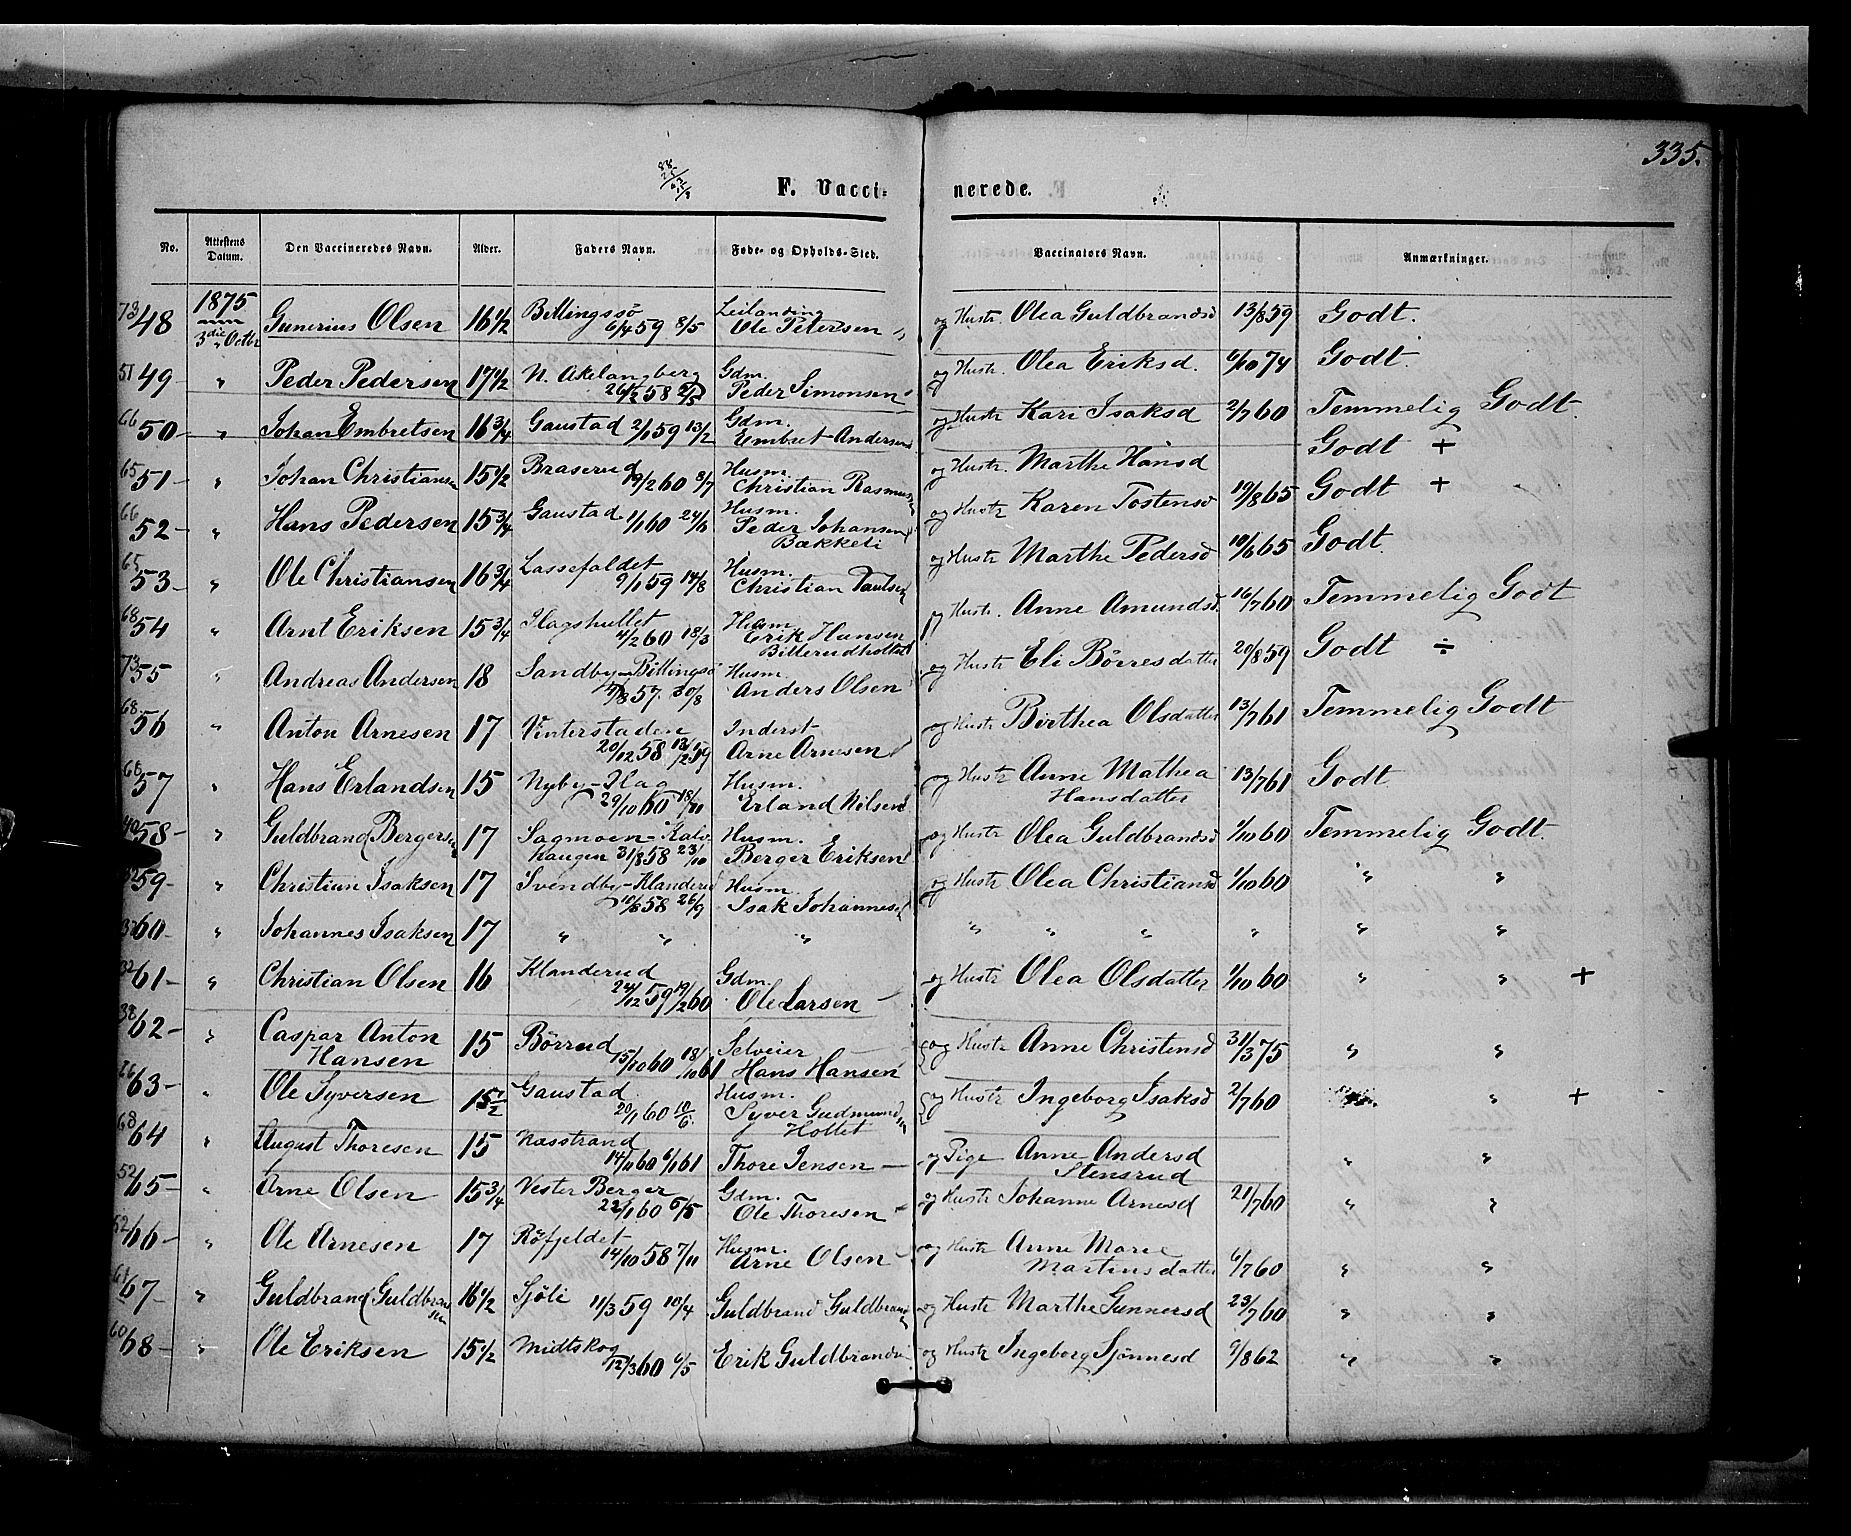 335.
F. Vacci- nerede.
No. Attestens Datum. Den Vaccineredes Navn. Alder. Faders Navn. Føde- og Opholds-Sted. Vaccinators Navn. Anmærkninger.
1875
3die Octbr
73 48 Gunerius Olsen 16 1/2 Billingssö 6/4 59 8/5 Leilending Ole Petersen og Hustr. Olea Guldbrandsd 13/8 59 Godt.
51 49 - " Peder Pedersen 17 1/2 N. Akelangberg 26/2 58 2/5 Gdm. Peder Simonsen og Hustr. Olea Eriksd. 6/10 74 Godt.
66 50 - " Johan Embretsen 16 3/4 Gaustad 2/1 59 13/2 Gdm. Embret Andersen og Hustr. Kari Isaksd 2/7 60 Temmelig Godt.
65 51 - " Johan Christiansen 15 1/2 Braserud 19/2 60 8/7 Husm. Christian Rasmussen og Hustr. Marthe Hansd Godt +
66 52 - " Hans Pedersen 15 3/4 Gaustad 1/1 60 24/6 Husm. Peder Johansen Bækkeli og Hustr Karen Tostensd 19/8 65 Godt +
65 53 - " Ole Christiansen 16 3/4 Lassefaldet 9/1 59 14/8 Husm. Christian Paulsen og Hustr Marthe Pedersd 10/6 65 Godt.
68 54 " Arnt Eriksen 15 3/4 Flagshullet 4/2 60 18/3 Husm. Erik Hansen og Hustr. Anne Amundsd. 16/7 60 Temmelig Godt
73 55 " Andreas Andersen 18 Sandby - Billingsö 30/8 Husm. Anders Olsen og Hustr Eli Börresdatter 20/8 59 Godt ÷
68 56 " Anton Arnesen 17 Vinterstaden 20/12 58 Inderst Arne Arnesen og Hustr Börthea Olsdatter 13/7 61 Temmelig Godt
68 57 " Hans Erlandsen 15 Nyby - Flag 29/10 60 Husm. Erland Nilsen og Hustr Anne Mathea Hansdatter 13/7 61 Godt
58 - " Guldbrand Bergersen 17 Sagmoen - Kalvhaugen 31/8 58 23/10 Husm. Berger Eriksen og Hustr Olea Guldbrandsd 1/10 60 Temmelig Godt.
59 - " Christian Isaksen 17 Svendby - Klanderud 10/8 58 26/9 Husm. Isak Johannesen og Hustr Olea Christiansd 1/10 60 " "
32 60 - " Johannes Isaksen 17 " " " " " " " " "
32 61 - " Christian Olsen 16 Klanderud 24/12 59 19/2 60 Gdm. Ole Larsen og Hustr Olea Olsdatter 1/10 60 " " +
38 62 - " Caspar Anton Hansen 15 Börrud 15/10 60 Selveier Hans Hansen og Hustr Anne Christensd 31/3 75 " "
26 63 - " Ole Syversen 15 1/2 Gaustad 20/1 60 10/6. Husm. Syver Gudmundsen Holtet og Hustr Ingeborg Isaksd 2/7 60 " +
68 64 " August Thoresen 15 Næsstrand 14/11 60 6/1 61 Thore Jensen - og Pige Anne Andersd Stensrud " "
52 65 - " Arne Olsen 15 3/4 Vester Berger 22/1 60 6/5 Gdm. Ole Thoresen - og Hustr Johanne Arnesd 21/7 60 " "
52 66 - " Ole Arnesen 17 Röfjeldet 14/10 58 7/11 Husm. Arne Olsen - og Hustr Anne Marie Martinsdatter 6/7 60 " "
61 67 - " Guldbrand Guldbrandsen 16 1/2 Sjöli 11/3 59 10/4 Guldbrand Guldbrandsen og Hustr Marthe Gunnersd 23/7 60 " "
60 68 - " Ole Eriksen 15 1/2 Midtskog 12/3 60 6/5 Erik Guldbrandsen og Hustr Ingeborg Sjønnesd 9/8 62 " "